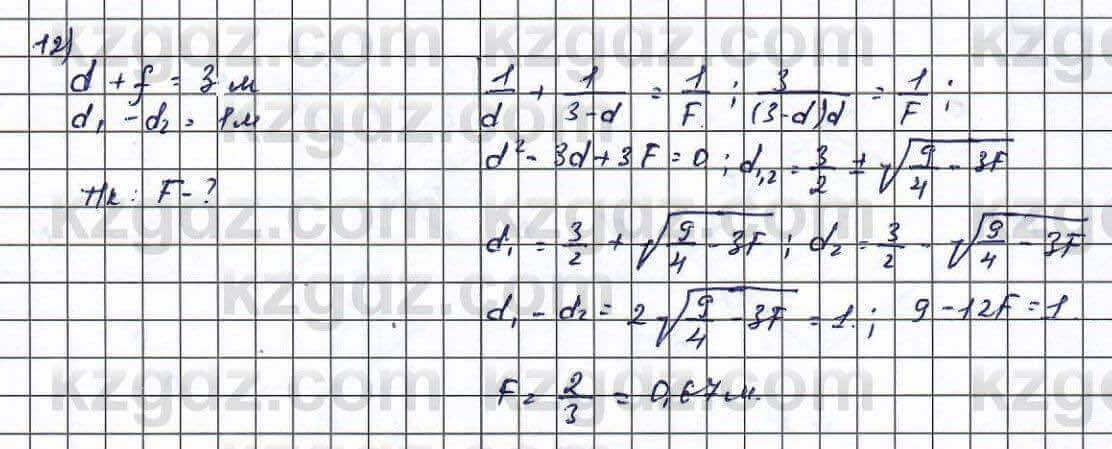 12)
d + f = 3 м
d₁ - d₂ = 1 м
Тк: F - ?
1/d + 1/(3-d) = 1/F ; 3/((3-d)d) = 1/F ;
d² - 3d + 3F = 0 ; d₁,₂ = 3/2 ± √(9/4 - 3F)
d₁ = 3/2 + √(9/4 - 3F) ; d₂ = 3/2 - √(9/4 - 3F)
d₁ - d₂ = 2√(9/4 - 3F) = 1. ; 9 - 12F = 1.
F = 2/3 = 0,67 м.
kzgdz.com kzgdz.com kzgdz.com
kzgdz.com
kzgdz.com kzgdz.com kzgdz.com
kzgdz.com
kzgdz.com kzgdz.com kzgdz.com